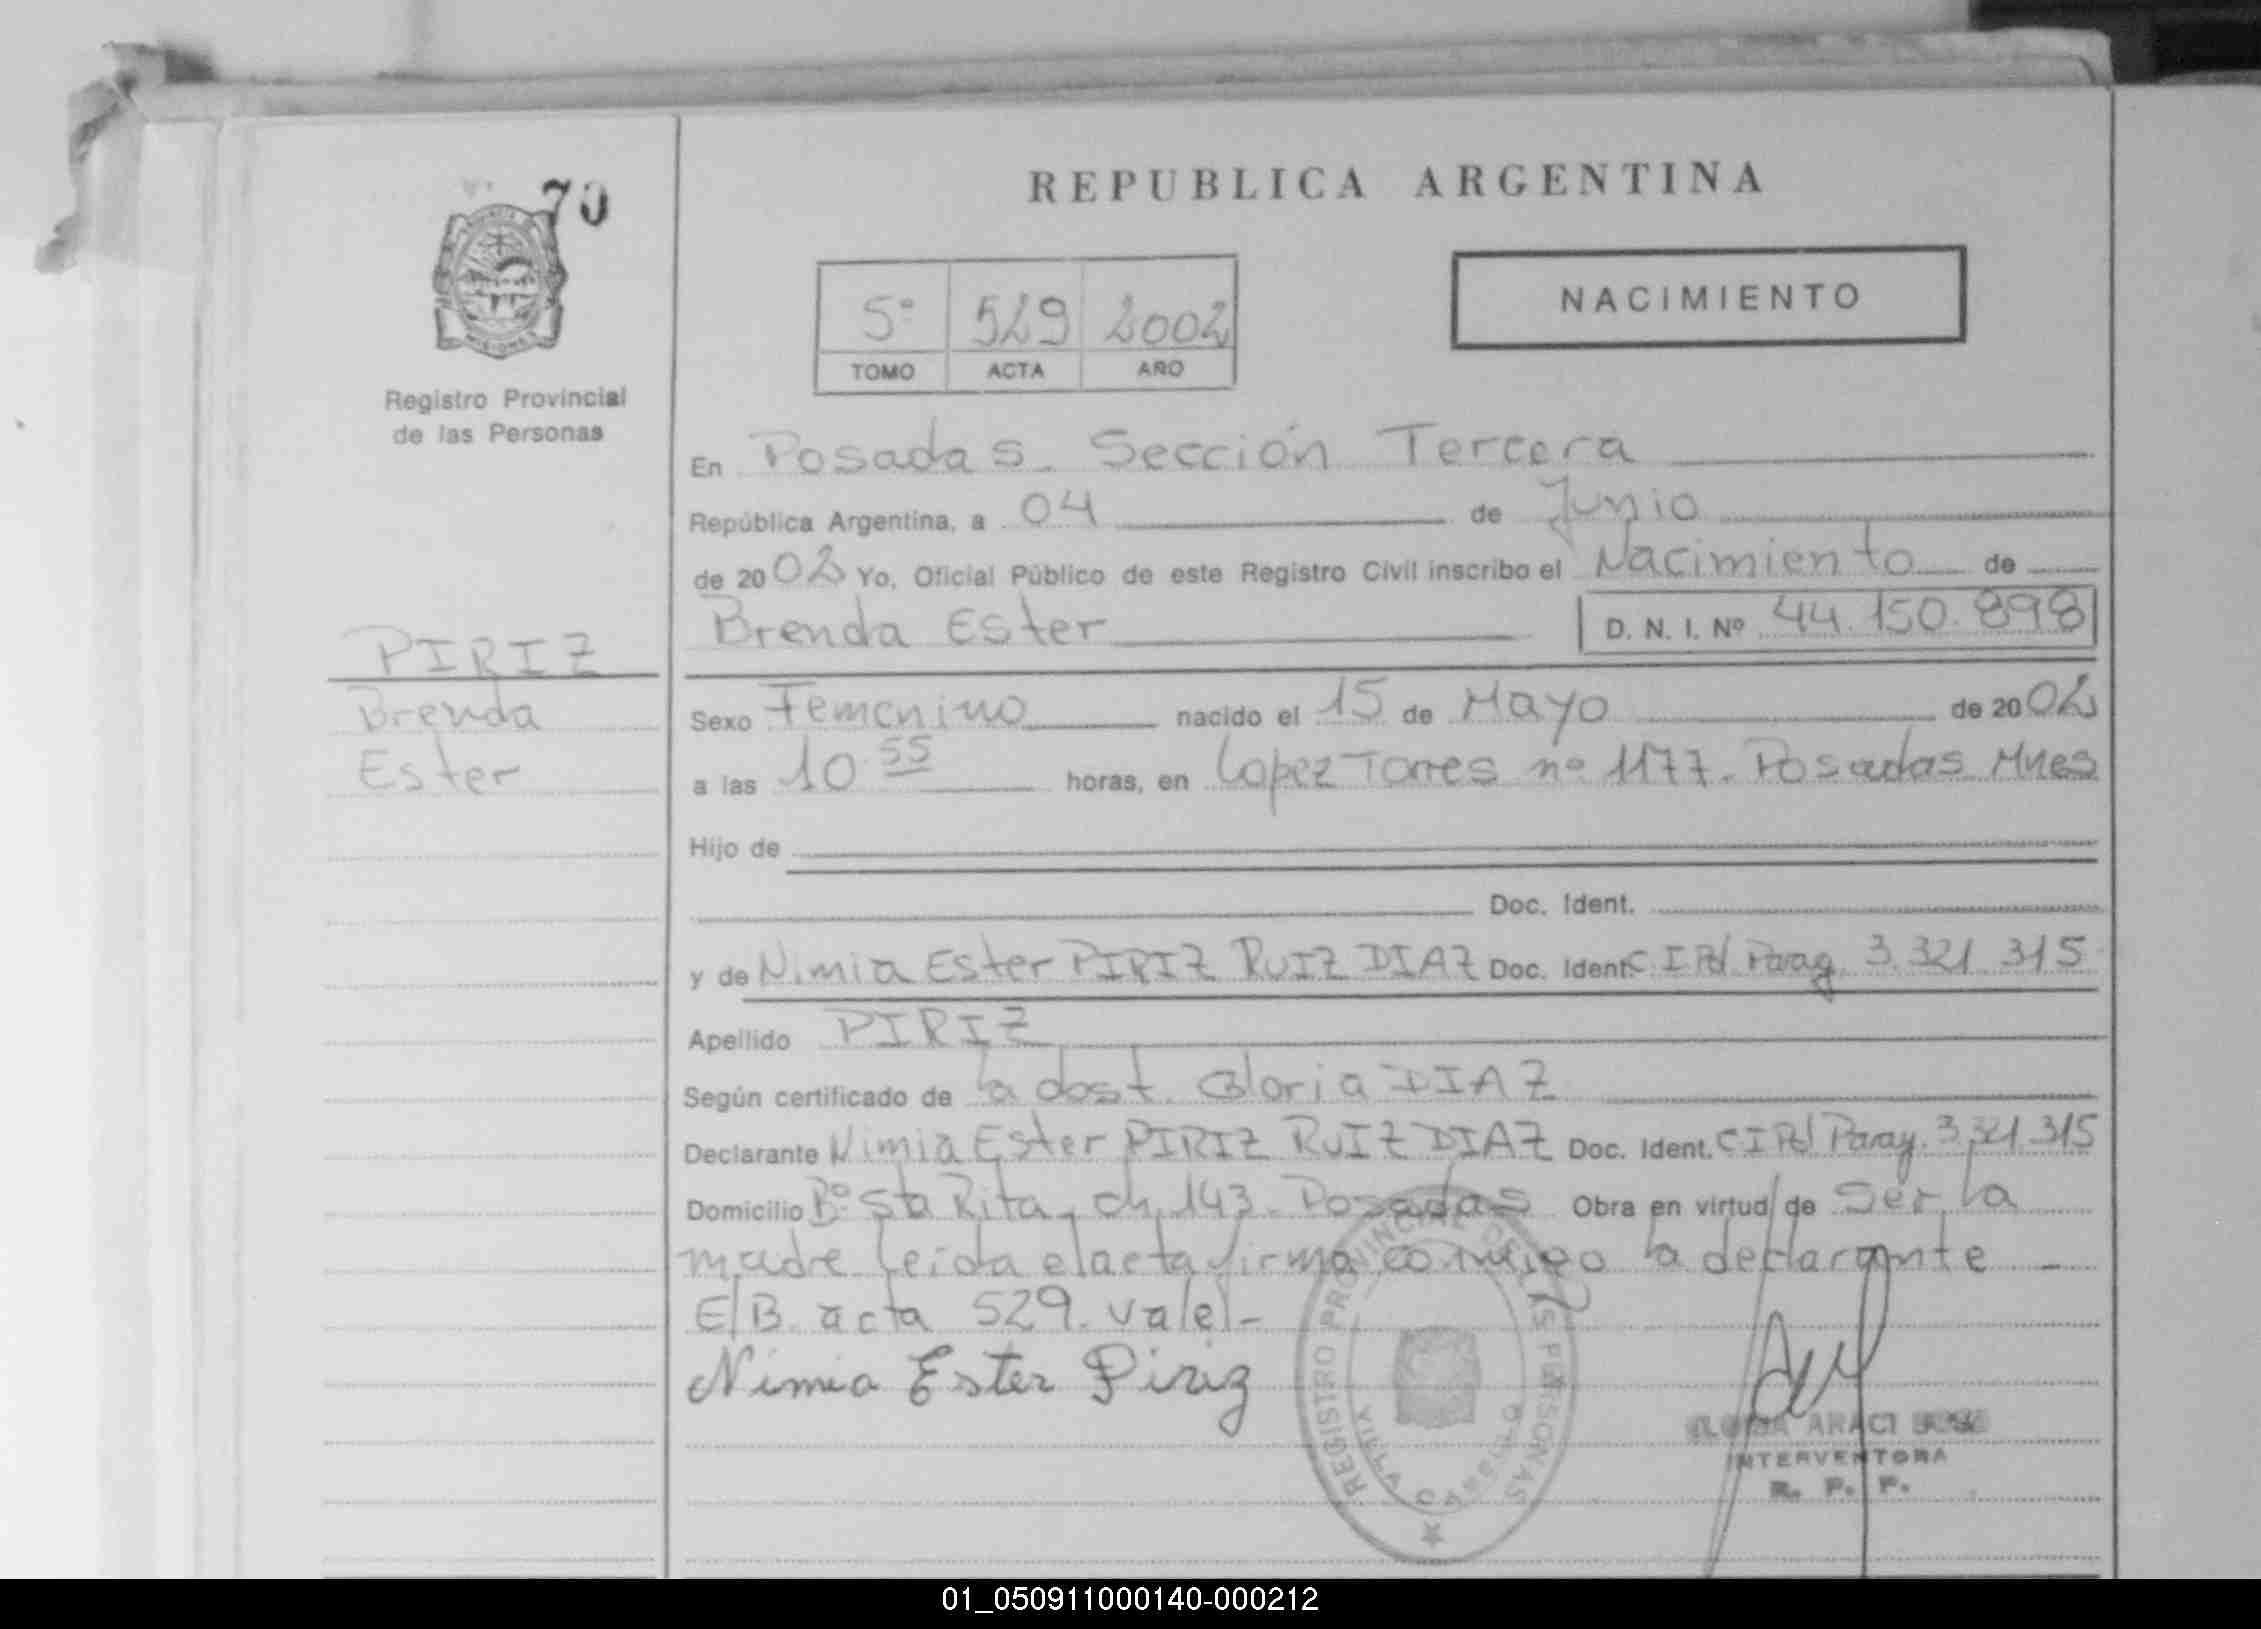 70
Registro Provincial
de las Personas
PIRIZ
Brenda
Ester
REPUBLICA ARGENTINA
5º 529 2002
TOMO ACTA AÑO
NACIMIENTO
En Posadas. Sección Tercera
República Argentina, a 04 de Junio
de 2002 Yo, Oficial Público de este Registro Civil inscribo el Nacimiento de
Brenda Ester D. N. I. Nº 44.150.898
Sexo Femenino nacido el 15 de Mayo de 2002
a las 10 55 horas, en Lopez Torres nº 1177. Posadas Mnes
Hijo de
Doc. Ident.
y de Nimia Ester PIRIZ RUIZ DIAZ Doc. Ident. C I Pol Parag. 3.321.315
Apellido PIRIZ
Según certificado de la obst. Gloria DIAZ
Declarante Nimia Ester PIRIZ RUIZ DIAZ Doc. Ident. C I Pol Parag. 3.321.315
Domicilio Bº Sta Rita - ch. 143 - Posadas Obra en virtud de ser la
madre leida el acta firma conmigo la declarante -
E/B. acta 529. vale! -
Nimia Ester Piriz
REGISTRO PROVINCIAL DE LAS PERSONAS
VILLA CABELLO
ARACI
INTERVENTORA
R. P. P.
01_050911000140-000212